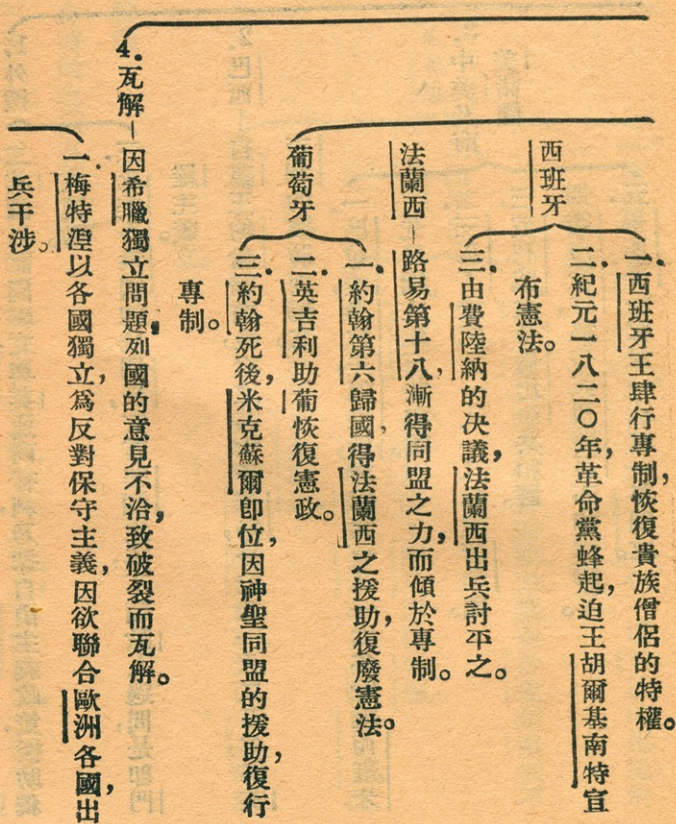 西班牙
一.西班牙王肆行專制,恢復貴族僧侶的特權。
二.紀元一八二〇年革命黨蜂起,迫王胡爾基南特宣
布憲法。
三.由費陸納的決議,法蘭西出兵討平之。
法蘭西—路易第十八,漸得同盟之力而傾於專制。
葡萄牙
一.約翰第六歸國,得法蘭西之援助,復廢憲法。
二.英吉利助葡恢復憲政。
三.約翰死後,米克蘇爾卽位,因神聖同盟的援助,復行
專制。
4.瓦解—因希臘獨立問題,列國的意見不洽,致破裂而瓦解。
一.梅特湼以各國獨立,爲反對保守主義,因欲聯合歐洲各國,出
兵干涉。